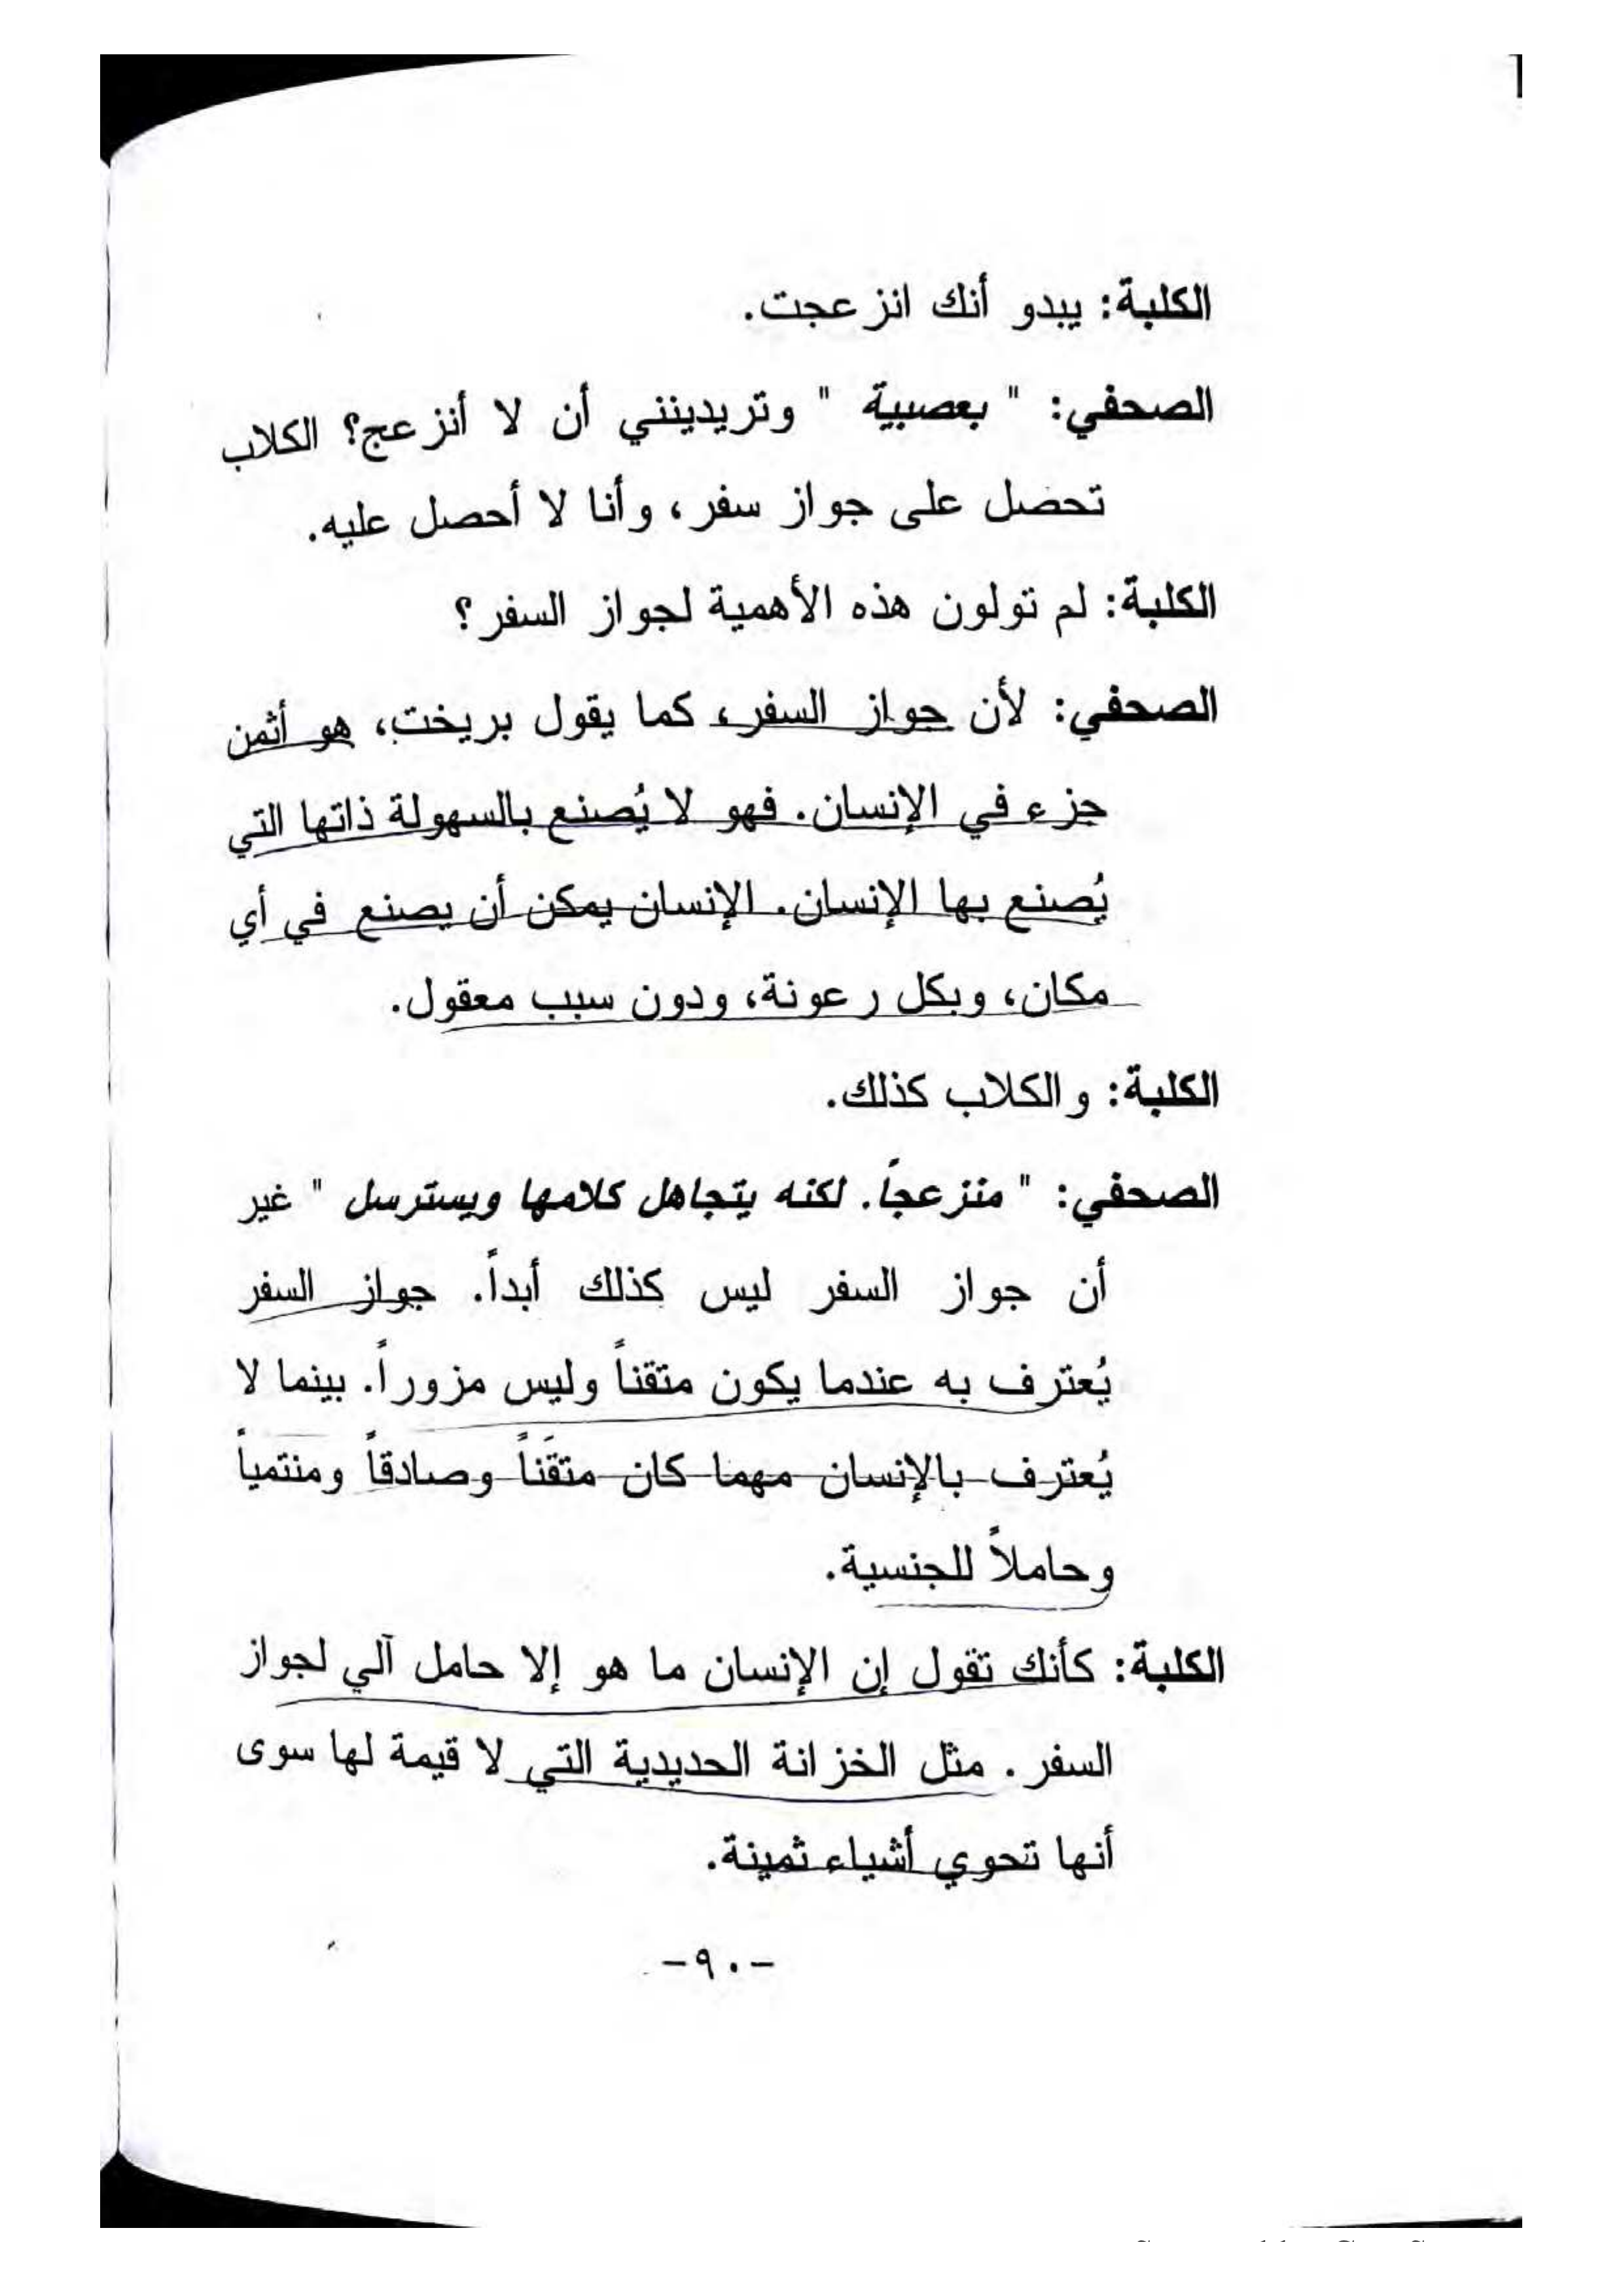 الكلبة: يبدو أنك انزعجت.
الصحفي: " بعصبية " وتريدينني أن لا أنزعج؟ الكلاب
تحصل على جواز سفر، وأنا لا أحصل عليه.
الكلبة: لم تولون هذه الأهمية لجواز السفر؟
الصحفي: لأن جواز السفر، كما يقول بريخت، هو أثمن
جزء في الإنسان. فهو لا يُصنع بالسهولة ذاتها التي
يُصنع بها الإنسان. الإنسان يمكن أن يصنع في أي
مكان، وبكل رعونة، ودون سبب معقول.
الكلبة: والكلاب كذلك.
الصحفي: " منزعجاً. لكنه يتجاهل كلامها ويسترسل " غير
أن جواز السفر ليس كذلك أبداً. جواز السفر
يُعترف به عندما يكون متقناً وليس مزوراً. بينما لا
يُعترف بالإنسان مهما كان متقَناً وصادقاً ومنتمياً
وحاملاً للجنسية.
الكلبة: كأنك تقول إن الإنسان ما هو إلا حامل آلي لجواز
السفر. مثل الخزانة الحديدية التي لا قيمة لها سوى
أنها تحوي أشياء ثمينة.
-٩٠-